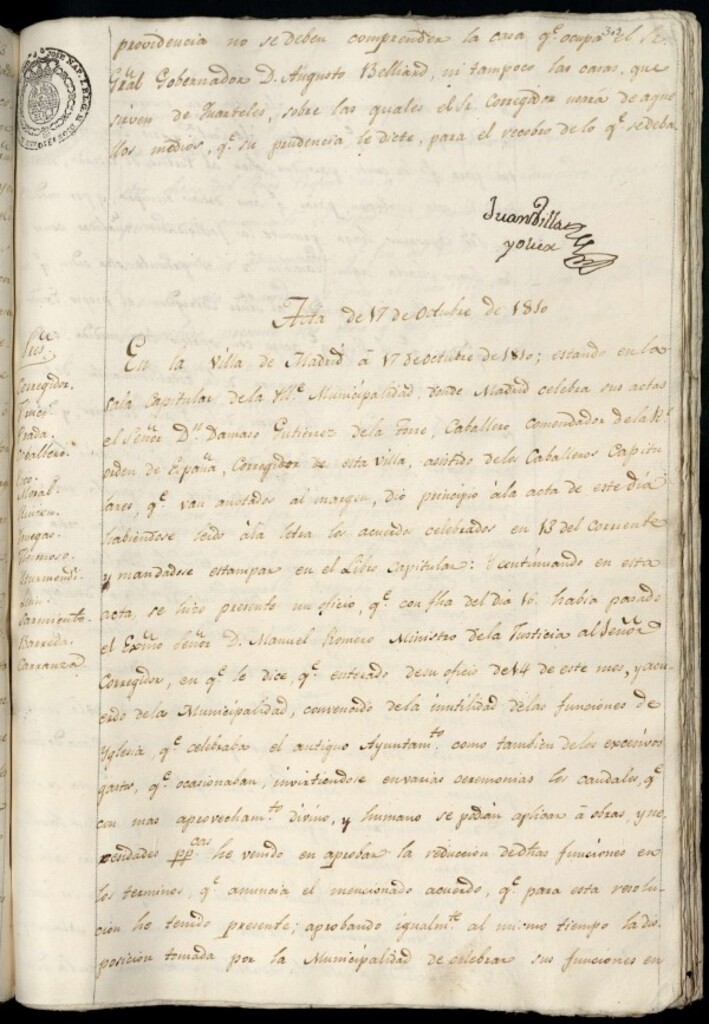 providencia no se deben comprender la casa q.e ocupa el Sr.
Gral Gobernador D. Augusto Belliard, ni tampoco las casas, que
sirven de Quarteles, sobre las quales el Sr. Corregidor usará de aque
llos medios, q.e su prudencia le dicte, para el recobro de lo q.e se deba.
Juan Villa
y Olier
Acta de 17 de Octubre de 1810
Sres
Corregidor.
Prada.
Caballero.
Moral.
Hermoso.
Sarmiento.
Barreda.
Carranza
En la villa de Madrid á 17 de octubre de 1810; estando en la
sala Capitular de la Ill.e Municipalidad, donde Madrid celebra sus actas
el Señor D.n Damaso Gutierrez de la Torre, Caballero comendador de la Rl.
orden de España, Corregidor de esta villa, asistido de los Caballeros Capitu
lares, q.e van anotados al margen, dio principio á la acta de este dia
habiendose leido á la letra los acuerdos celebrados en 13 del corriente
y mandadose estampar en el Libro Capitular: Y continuando en esta
acta, se hizo presente un oficio, q.e con fha del dia 16. habia pasado
el Exmo Señor D. Manuel Romero Ministro de la Justicia al Señor
Corregidor, en q.e le dice, q.e enterado de su oficio de 14 de este mes, y acu-
erdo de la Municipalidad, convencido de la inutilidad de las funciones de
Yglesia, q.e celebraba el antiguo Ayuntam.to como tambien de los excesivos
gastos, q.e ocasionaban, invirtiendose en varias ceremonias los caudales, q.e
con mas aprovecham.to divino, y humano se podian aplicar á obras, y ne-
cesidades pp.cas he venido en aprobar la reduccion de dhas funciones en
los terminos, q.e anuncia el mencionado acuerdo, q.e para esta resolu-
cion he tenido presente; aprobando igualm.te al mismo tiempo la dis
posicion tomada por la Municipalidad de celebrar sus funciones en